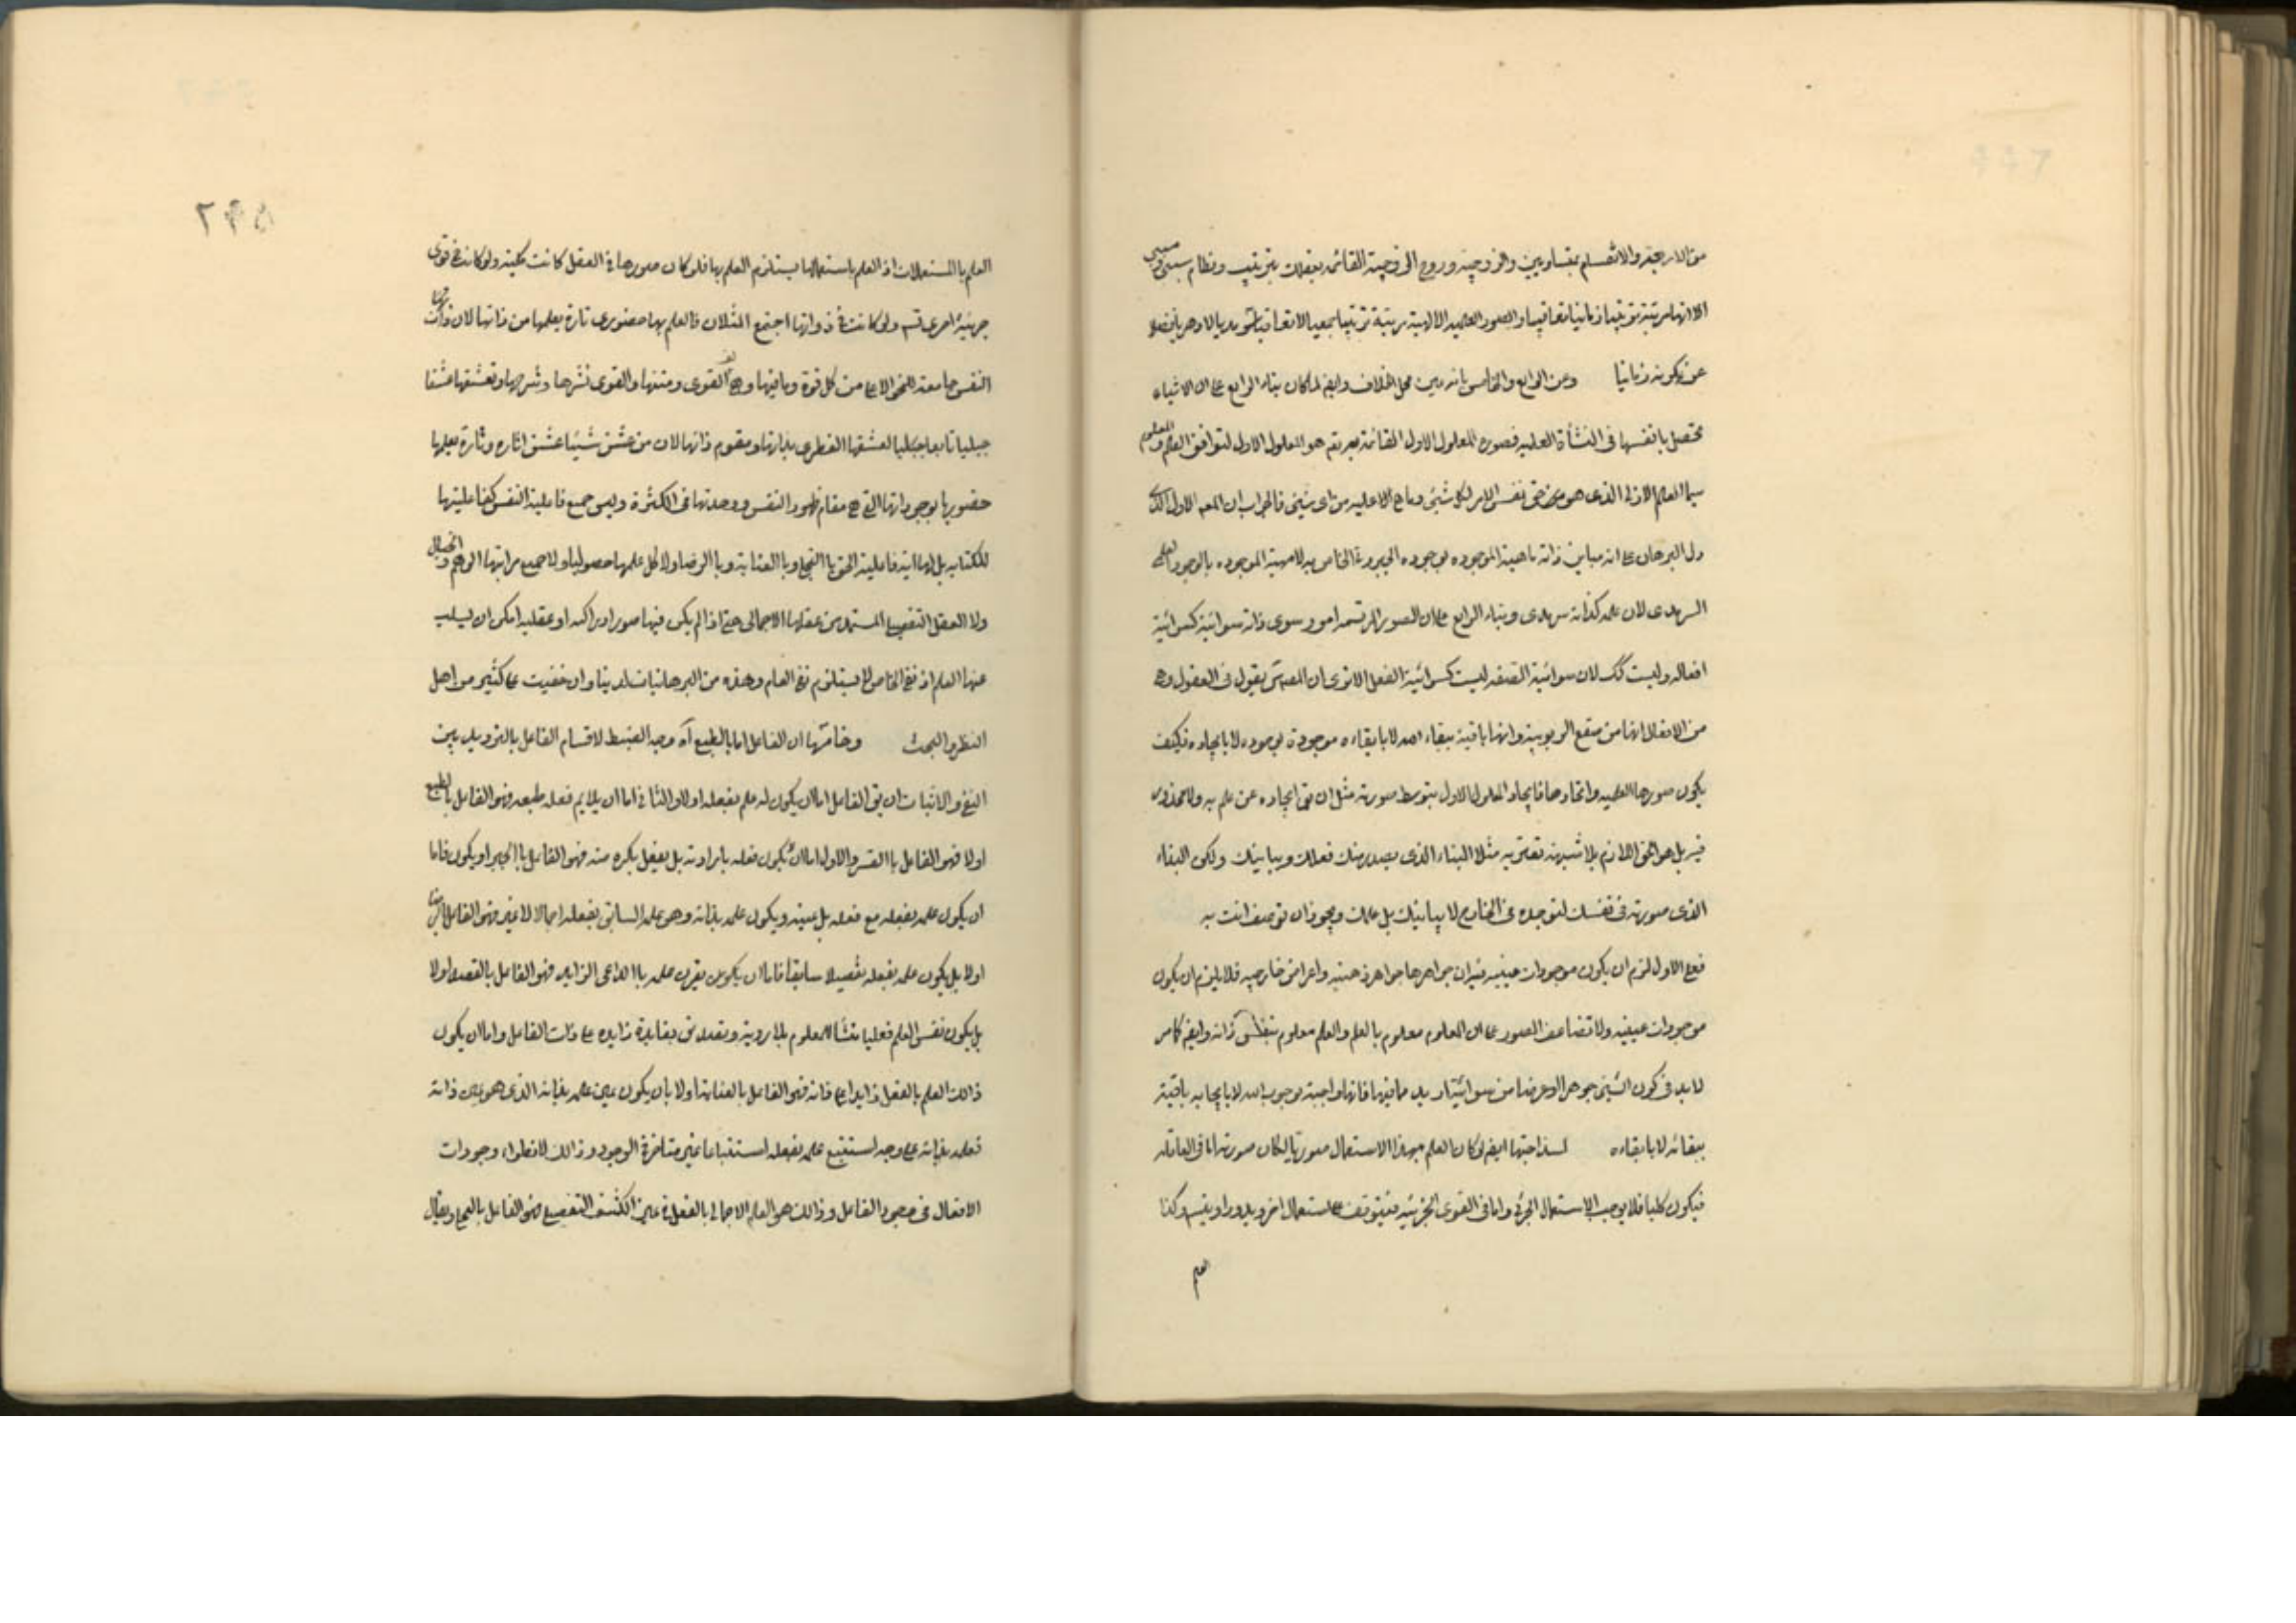 من الاربعة والانقسام بمتساويين والزوجية وروح الزوجية القائمة بعقلك بترتيب ونظام سببى ومسببى
الا انها مرتبة ترتيبا زمانيا تعاقبيا والصور العلمية الالهية مرتبة ترتيبا بجمعيا لا تعاقبيا
عن تكونه زمانيا وعن الرابع والخامس بانه عين محل الخلاف وايضا لما كان بناء الرابع على ان الاشياء
تحصل بانفسها فى النشأة العلمية فصورة المعلول الاول القائمة به تعالى هو المعلول الاول لتوافق العلم والمعلوم
سيما العلم الازلى الذى هو نفس الامر لكل شئ وما هى الا عليه من اى شئ فالجواب ان المعلول الاول الذى
دل البرهان على انه مباين ذاته ماهيته الموجودة بوجوده الجبروتى الخاص به لا مهيته الموجودة بالوجود العلمى
السرمدى لان علمه كذاته سرمدى وبناء الرابع على ان الصور المرتسمة امور سوى ذاته سوائية كسوائية
افعاله وليست كك لان سوائية الصفة ليست كسوائية الفعل الا ترى ان المصنف يقول فى العقول وهى
من الافعال انها من صقع الربوبية وانها باقية ببقاء الله لا بابقاءه موجودة بوجوده لا بايجاده فكيف
يكون صورها العلمية واتحادها فايجاد المعلول الاول بتوسط صورته مثل ان يق ايجاده عن علم به ولا محذور
فيه بل هو الحق اللازم بلا شبهة تعتريه مثلا البناء الذى يصدر منك فعلك ويباينك ولكن البناء
الذى صورته فى نفسك لتوجده فى الخارج لا يباينك بل علمك ويجوز ان توصف انت به
فعلى الاول لزم ان يكون موجودات عينية فيه ان جواهرها جواهر ذهنية واعراض خارجية فلا يلزم ان يكون
موجودات عينية ولا تضاعف الصور على ان المعلوم معلوم بالعلم والعلم معلوم بنفس ذاته وايضا كما مر
لابد فى كون الشئ جوهرا او عرضا من سوائية ازيد مما فيها فانها واجبة بوجوب الله لا بايجابه باقية
ببقائه لا بابقاءه لسذاجتها ايضا لو كان العلم بهذا الاستعمال صوريا لكان صورته اما فى العاقلة
فيكون كليا فلا يوجب الاستعمال الجزئى واما فى القوى الجزئية فيتوقف على استعمال اخر ويدور او يتسلسل وكذا
العلم
٥٩٢
العلم بالمستعملات اذ العلم باستعمالها يستلزم العلم بها فلو كان صورها فى العقل كانت كلية ولو كانت فى قوى
جزئية اخرى تسلسل ولو كانت فى ذواتها اجتمع المثلان فالعلم بها حضورى تارة بعلمها من ذاتها لان ذات
النفس جامعة للنحو الاعلى من كل قوة وما فيها وهى لف القوى ومتنها والقوى نشرها وشرحها وتعشقها عشقا
جبليا تابعا جبليا لعشقها الفطرى بذاتها ومقوم ذاتها لان من عشق شيئا عشق اثاره وتارة بعلمها
حضوريا بوجوداتها التى هى مقام ظهور النفس ووحدتها فى الكثرة وليس جميع فاعلية النفس كفاعليتها
للكتابة بل لها اية فاعلية الحق بالتجلى وبالعناية وبالرضا ولا كل علمها حصوليا ولا جميع مراتبها الوهم والخيال
ولا العقل التفصيلى المستمد من عقلها الاجمالى حتى اذا لم يكن فيها صور ادراكية او عقلية امكن ان يسلب
عنها العلم اذ نفى الخاص لا يستلزم نفى العام وهذه من البرهانيات لدينا وان خفيت على كثير من اهل
النظر والبحث وخامسها ان الفاعل اما بالطبع آه وجه الضبط لاقسام الفاعل بالترديد بين
النفى والاثبات ان يق الفاعل اما ان يكون له علم بفعله او لا والثانى اما ان يلايم فعله طبعه فهو الفاعل بالطبع
او لا فهو الفاعل بالقسر والاول اما ان لا يكون فعله بارادته بل يفعل بكره منه فهو الفاعل بالجبر او يكون فاما
ان يكون علمه بفعله مع فعله بل عينه ويكون علمه بذاته وهو علمه السابق بفعله اجمالا لا غير فهو الفاعل بالرضا
او لا بل يكون علمه بفعله تفصيلا سابقا فاما ان يكون يقرن علمه بالداعى الزايد فهو الفاعل بالقصد او لا
بل يكون نفس العلم فعليا منشأ للمعلوم بلا روية وتصديق بفايدة زايدة على ذات الفاعل واما ان يكون
ذالك العلم بالفعل زايدا على ذاته فهو الفاعل بالعناية او لا بان يكون عين علمه بذاته الذى هو عين ذاته
فعلمه بذاته على وجه استتبع علمه بفعله استتباعا غير متاخرة الوجود وذالك لانطواء وجودات
الافعال فى وجود الفاعل وذالك هو العلم الاجمالى بالفعل فى عين الكشف التفصيلى فهو الفاعل بالتجلى ويقال